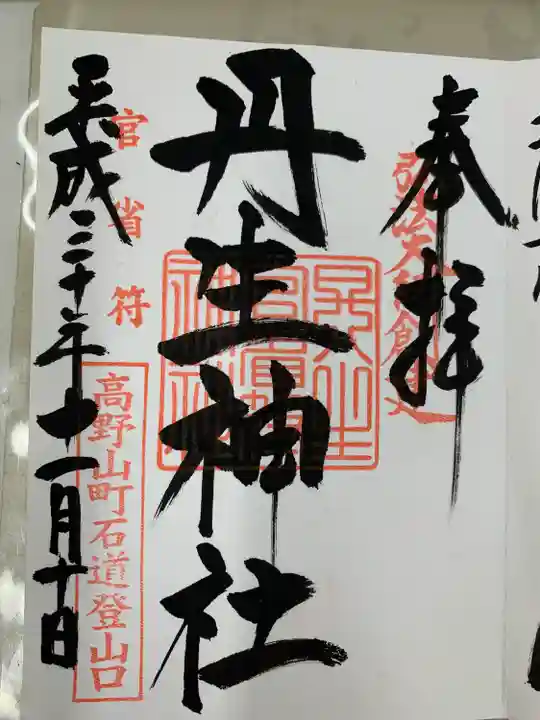 奉拝
弘法大師創建
丹生神社
官省符
平成三十年十一月十日
高野山町石道登山口